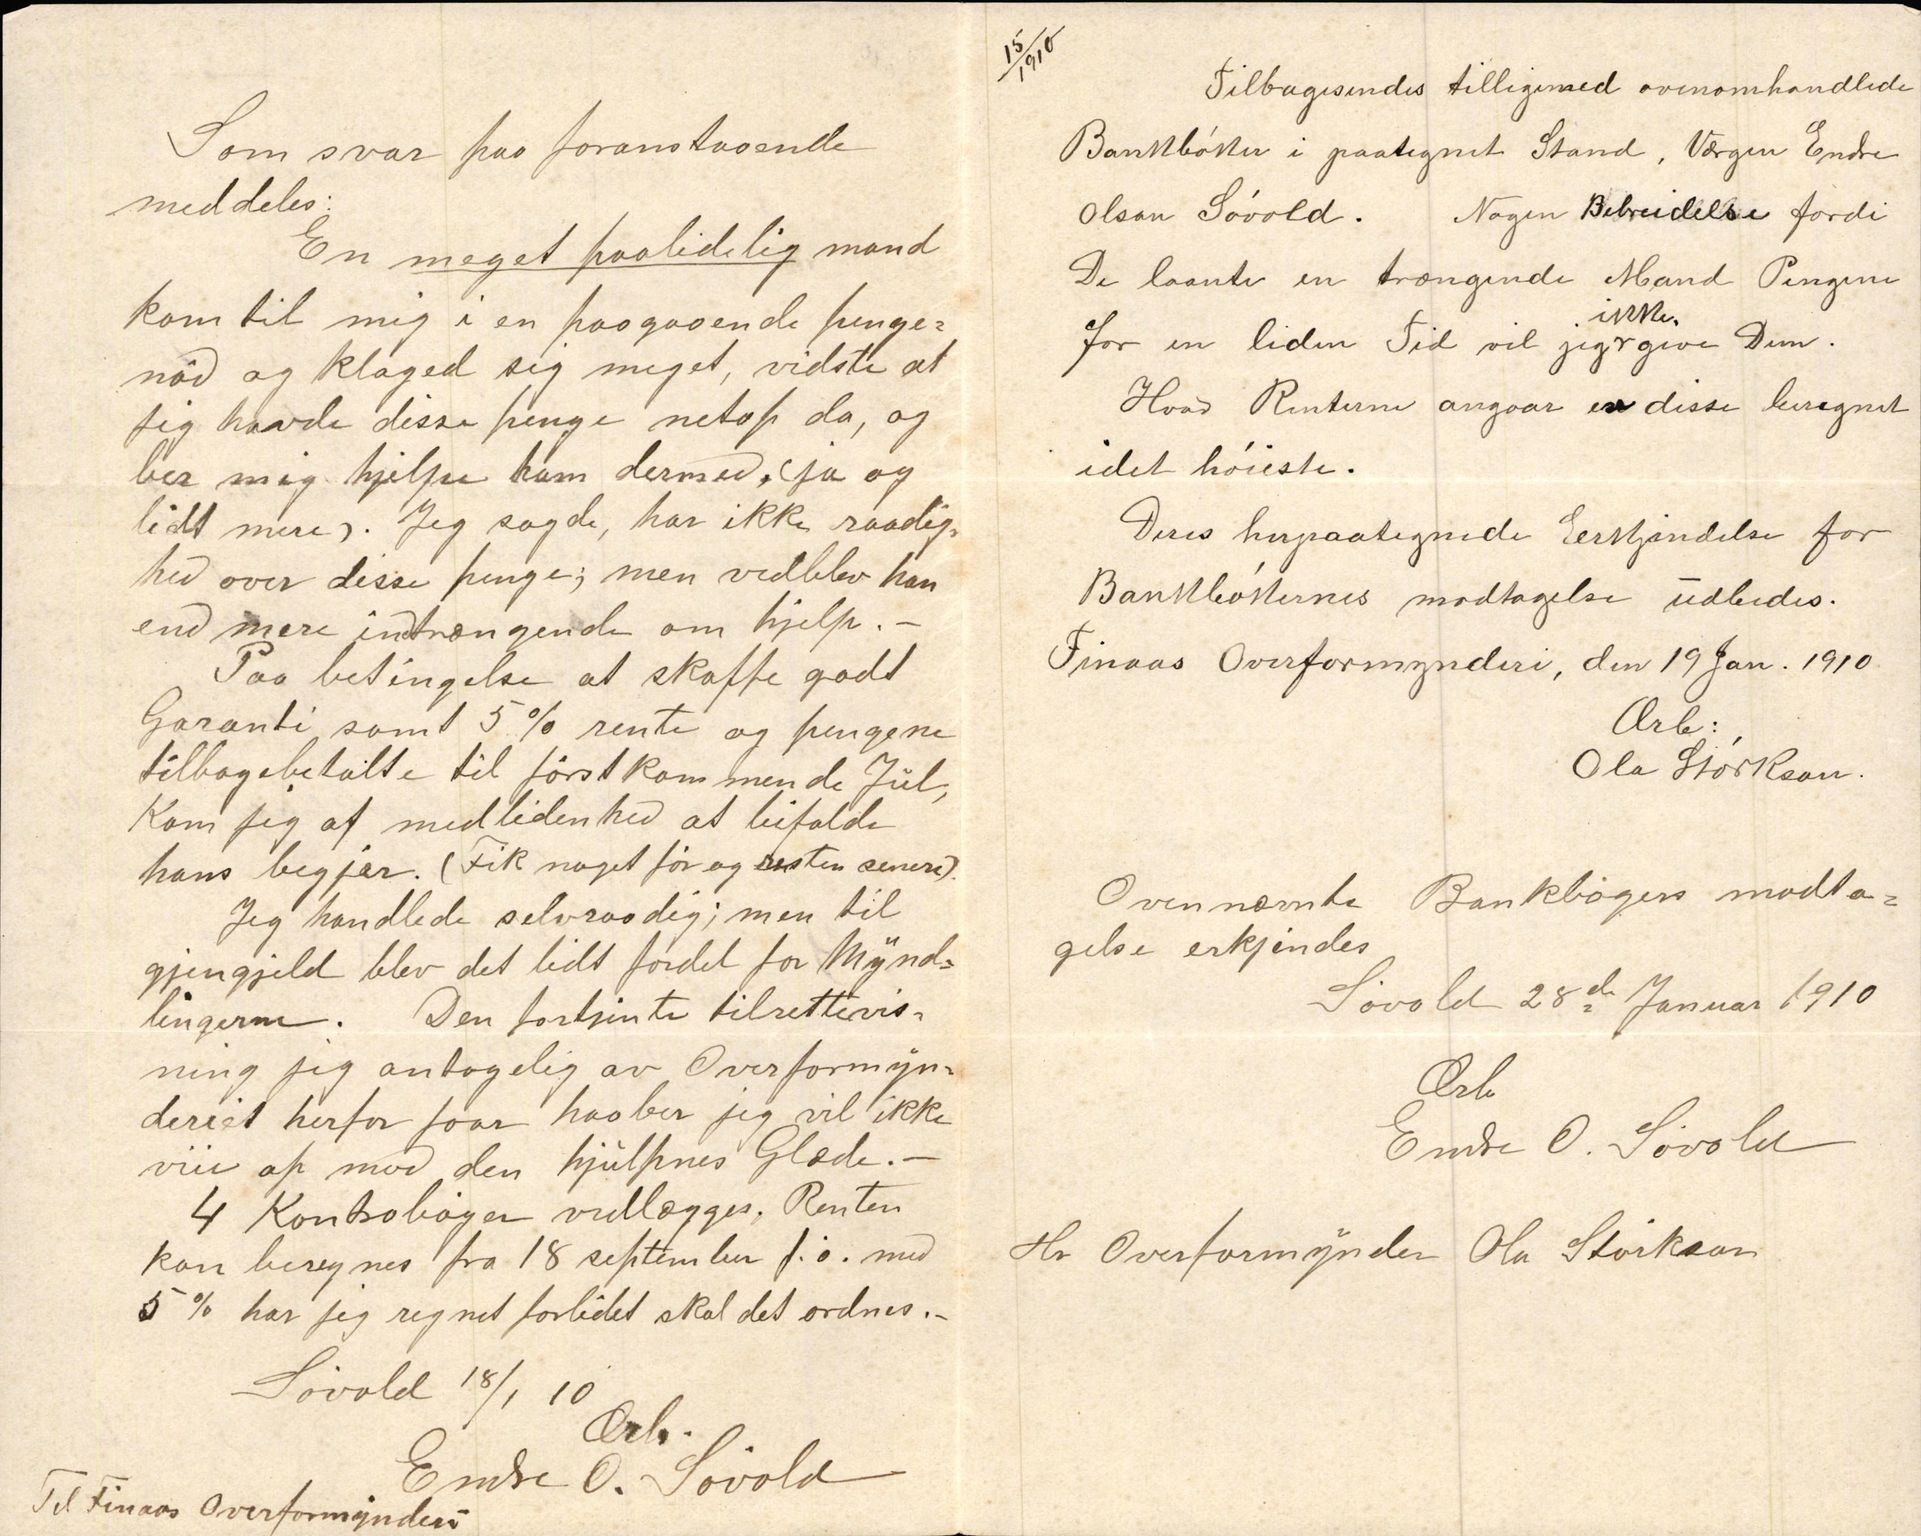 Som svar paa foranstaaende
meddeles:
En meget paalidelig mand
kom til mig i en paagaaende penge=
nöd og klaged sig meget, vidste at
jeg havde disse penge netop da, og
ber mig hjelpe ham dermed, (ja og
lidt mere). Jeg sagde, har ikke raadig=
hed over disse penge; men vedblev han
end mere indtrængende om hjelp. —
Paa betingelse at skaffe godt
Garanti samt 5 % rente og pengene
tilbagebetalte til förstkommende Jul,
kom jeg af medlidenhed at bifalde
hans begjær. (Fik noget för og resten senere).
Jeg handlede selvraadig; men til
gjengjeld blev det lidt fordel for Mynd=
lingerne. Den fortjente tilrettevis=
ning jeg antagelig av Overformyn=
deriet herfor faar haaber jeg vil ikke
viie op mod den hjulpnes Glæde. —
4 Kontraböger vedlægges. Renten
kan beregnes fra 18 september f. å. med
5 % har jeg regnet forlidet skal det ordnes. —
Sövold 18/1 10
Ærb.
Endre O. Sövold
Til Finaas Overformynderi
15/1910
Tilbagesendes tilligemed ovenomhandlede
Bankbóker i paategnet Stand, Værgen Endre
Olson Sóvold. Nogen Bebreidelse fordi
De laante en trængende Mand Pengene
ikke
for en liden Tid vil jeg give Dem.
Hvad Renterne angaar er disse beregnet
idet hóieste.
Deres herpaategnede Eerkjendelse for
Bankbókernes modtagelse udbedes.
Finaas Overformynderi, den 19 Jan. 1910
Ærb:,
Ola Stórkson.
Ovennævnte Bankbögers modta=
gelse erkjendes
Sövold 28de Januar 1910
Ærb
Endre O. Sövold
Hr Overformynder Ola Störkson